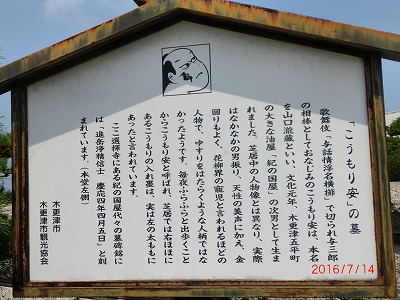 「こうもり安」の墓
歌舞伎「与話情浮名横櫛」で切られ与三郎
の相棒としておなじみのこうもり安は、本名
を山口瀧蔵といい、文化元年、木更津五平町
の大きな油屋「紀の国屋」の次男として生ま
れました。芝居中の人物像とは異なり、実際
はなかなかの男振り、天性の美声に加え、金
回りもよく、花柳界の寵児と言われるほどの
人物で、ゆすりをはたらくような人柄ではな
かったようです。毎夜ふらふらと出歩くこと
からこうもり安と呼ばれ、芝居では右ほほに
あるこうもりの入れ墨は、実は左の太ももに
あったと言われています。
ここ選擇寺にある紀の国屋代々の墓碑銘に
は「進岳浄精信士 慶応四年四月五日」と刻
まれています。(本堂左側)
木更津市
木更津市観光協会
2016/7/14